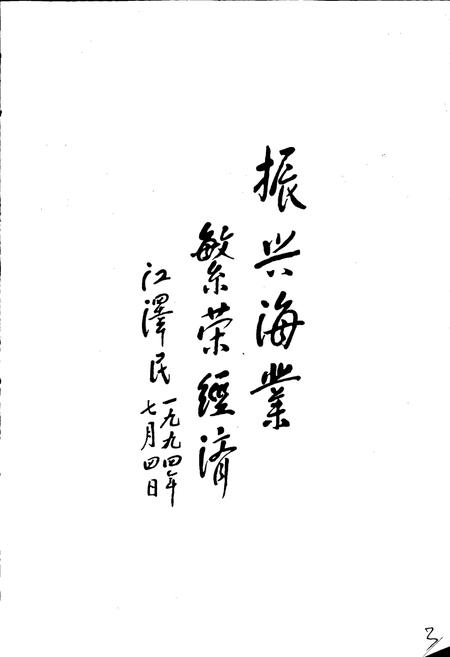 振兴海業
繁荣經濟
江澤民
一九九四年
七月四日
3